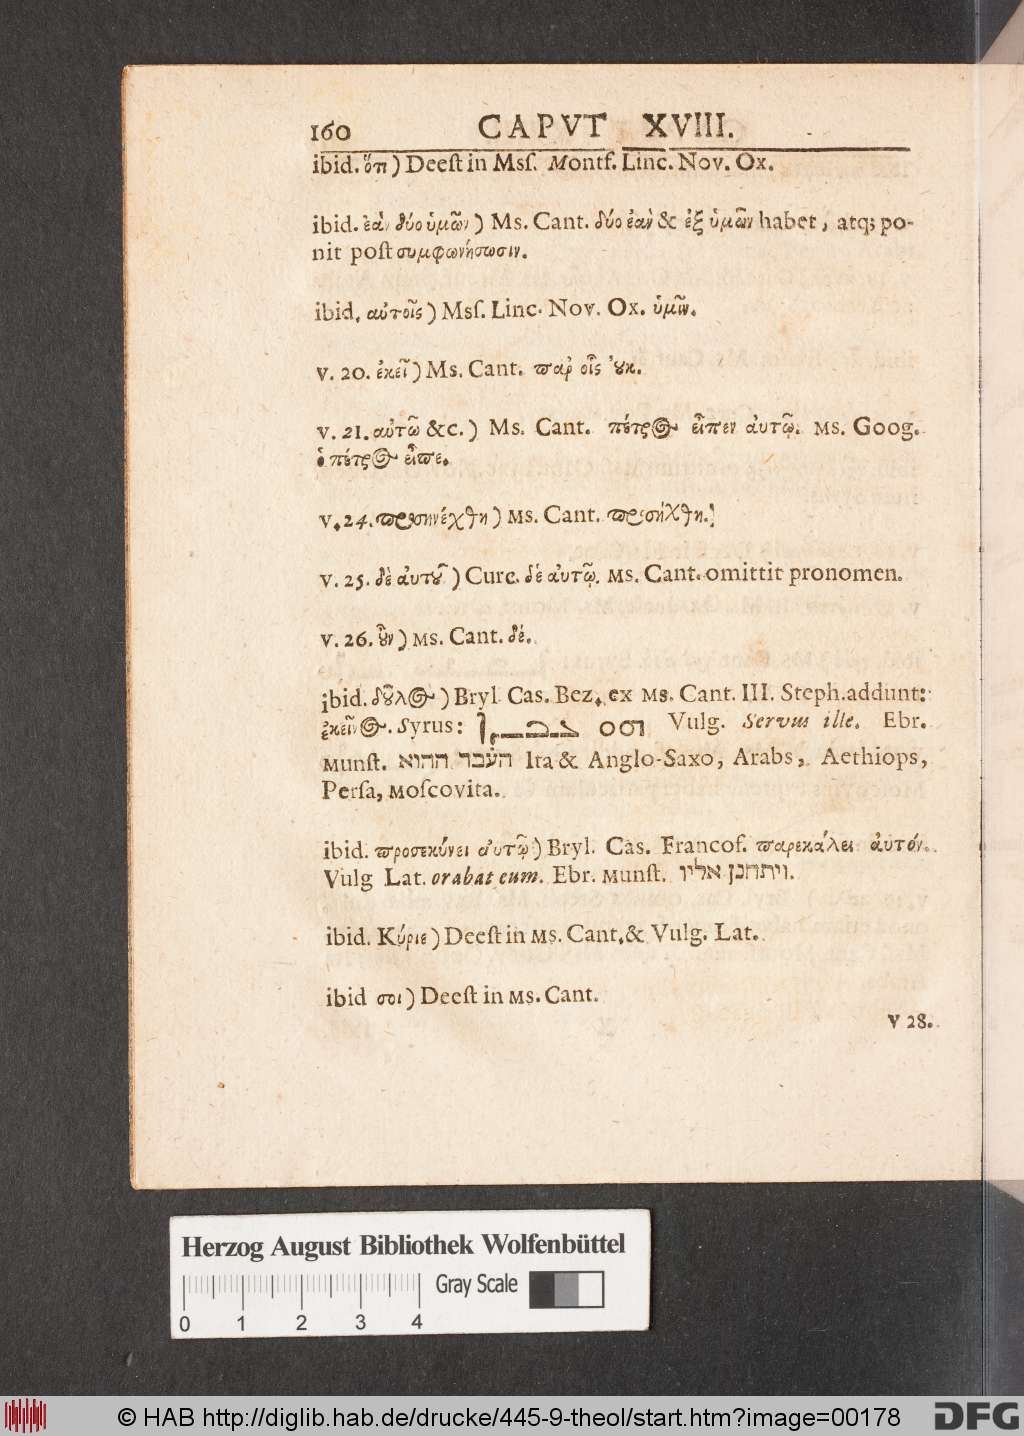 160 CAPVT XVIII.
ibid. ὅτι) Deeſt in Mſſ. Montf. Linc. Nov. Ox.
ibid. ἐὰν δύο ὑμῶν) Ms. Cant. δύο ἐὰν & ἐξ ὑμῶν habet, atq; po-
nit poſt συμφωνήσωσιν.
ibid. αὐτοῖς) Mſſ. Linc. Nov. Ox. ὑμῖν.
v. 20. ἐκεῖ) Ms. Cant. παρ οἷς ȣκ.
v. 21. αὐτῶ &c.) Ms. Cant. πέτρος εἶπεν ἀυτῷ. Ms. Goog.
ὁ πέτρος εἶπε.
v. 24. προσηνέχθη) Ms. Cant. προσήχθη.
v. 25. δὲ ἀυτȣ͂) Curc. δέ αὐτῷ. Ms. Cant. omittit pronomen.
v. 26. ȣ͂ν) Ms. Cant. δέ.
ibid. δȣ͂λος) Bryl. Cas. Bez. ex Ms. Cant. III. Steph. addunt:
ἐκεῖνος. Syrus: ܗܘ Vulg. Servus ille. Ebr.
Munſt. העבר ההוא Ita & Anglo-Saxo, Arabs, Aethiops,
Perſa, Moſcovita.
ibid. προσεκύνει ἀυτῷ) Bryl. Cas. Francof. παρεκάλει ἀυτόν.
Vulg Lat. orabat eum. Ebr. Munſt. ויתחנן אליו.
ibid. Κύριε) Deeſt in Ms. Cant. & Vulg. Lat.
ibid σοι) Deeſt in Ms. Cant.
v 28.
Herzog August Bibliothek Wolfenbüttel
Gray Scale
0 1 2 3 4
© HAB http://diglib.hab.de/drucke/445-9-theol/start.htm?image=00178 DFG